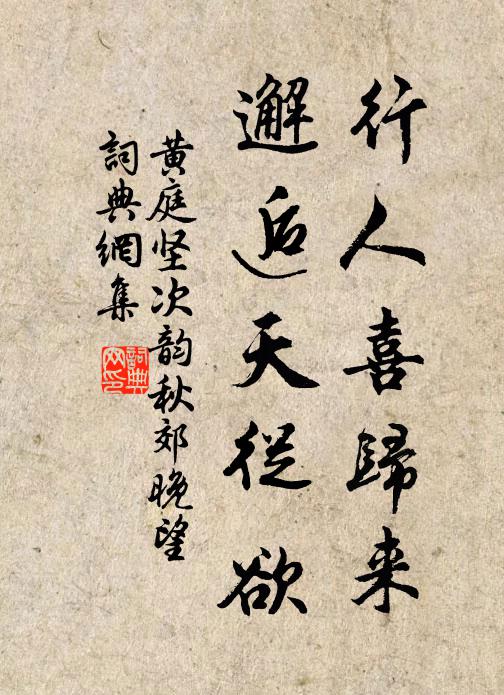 行人喜歸来
邂逅天從欲
黄庭坚次韵秋郊晚望
詞典網集
詞典网印